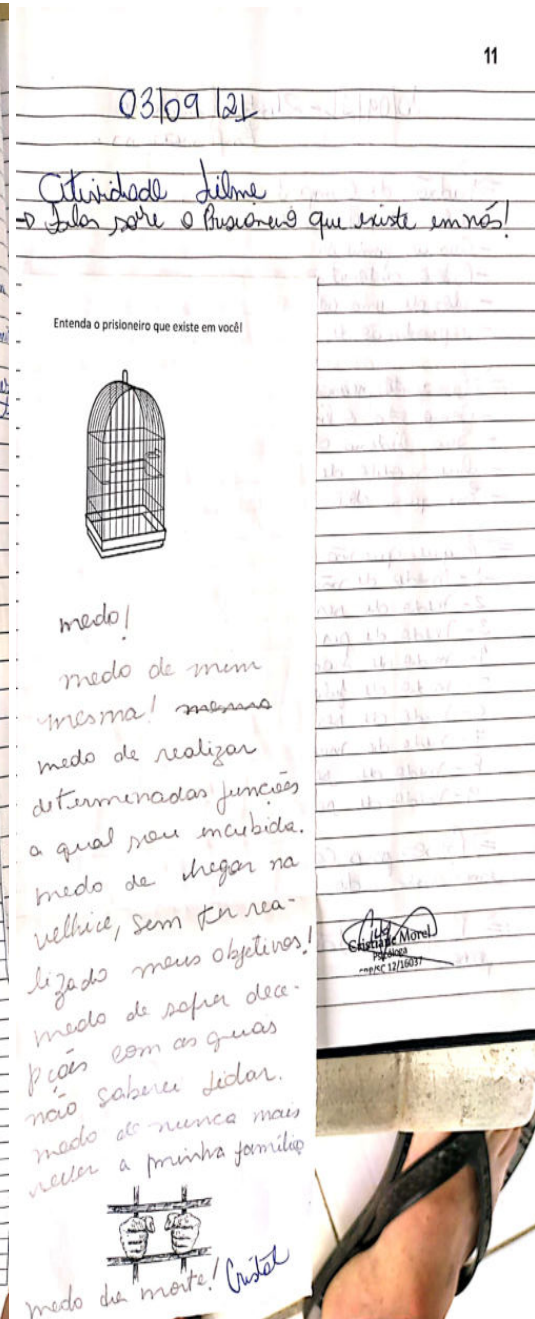 11
03/09/21
Atividade Filme
→ Falar sobre o Prisioneiro que existe em nós!
Entenda o prisioneiro que existe em você!
medo!
medo de mim
mesma!
medo de realizar
determinadas funções
a qual sou incubida.
medo de chegar na
velhice, sem ter rea-
lizado meus objetivos!
medo de sofrer dece-
pções com as quais
não saberei lidar.
medo de nunca mais
rever a minha família
medo da morte! Cristal
Cristiane Morel
Psicóloga
CRP/SC 12/16037